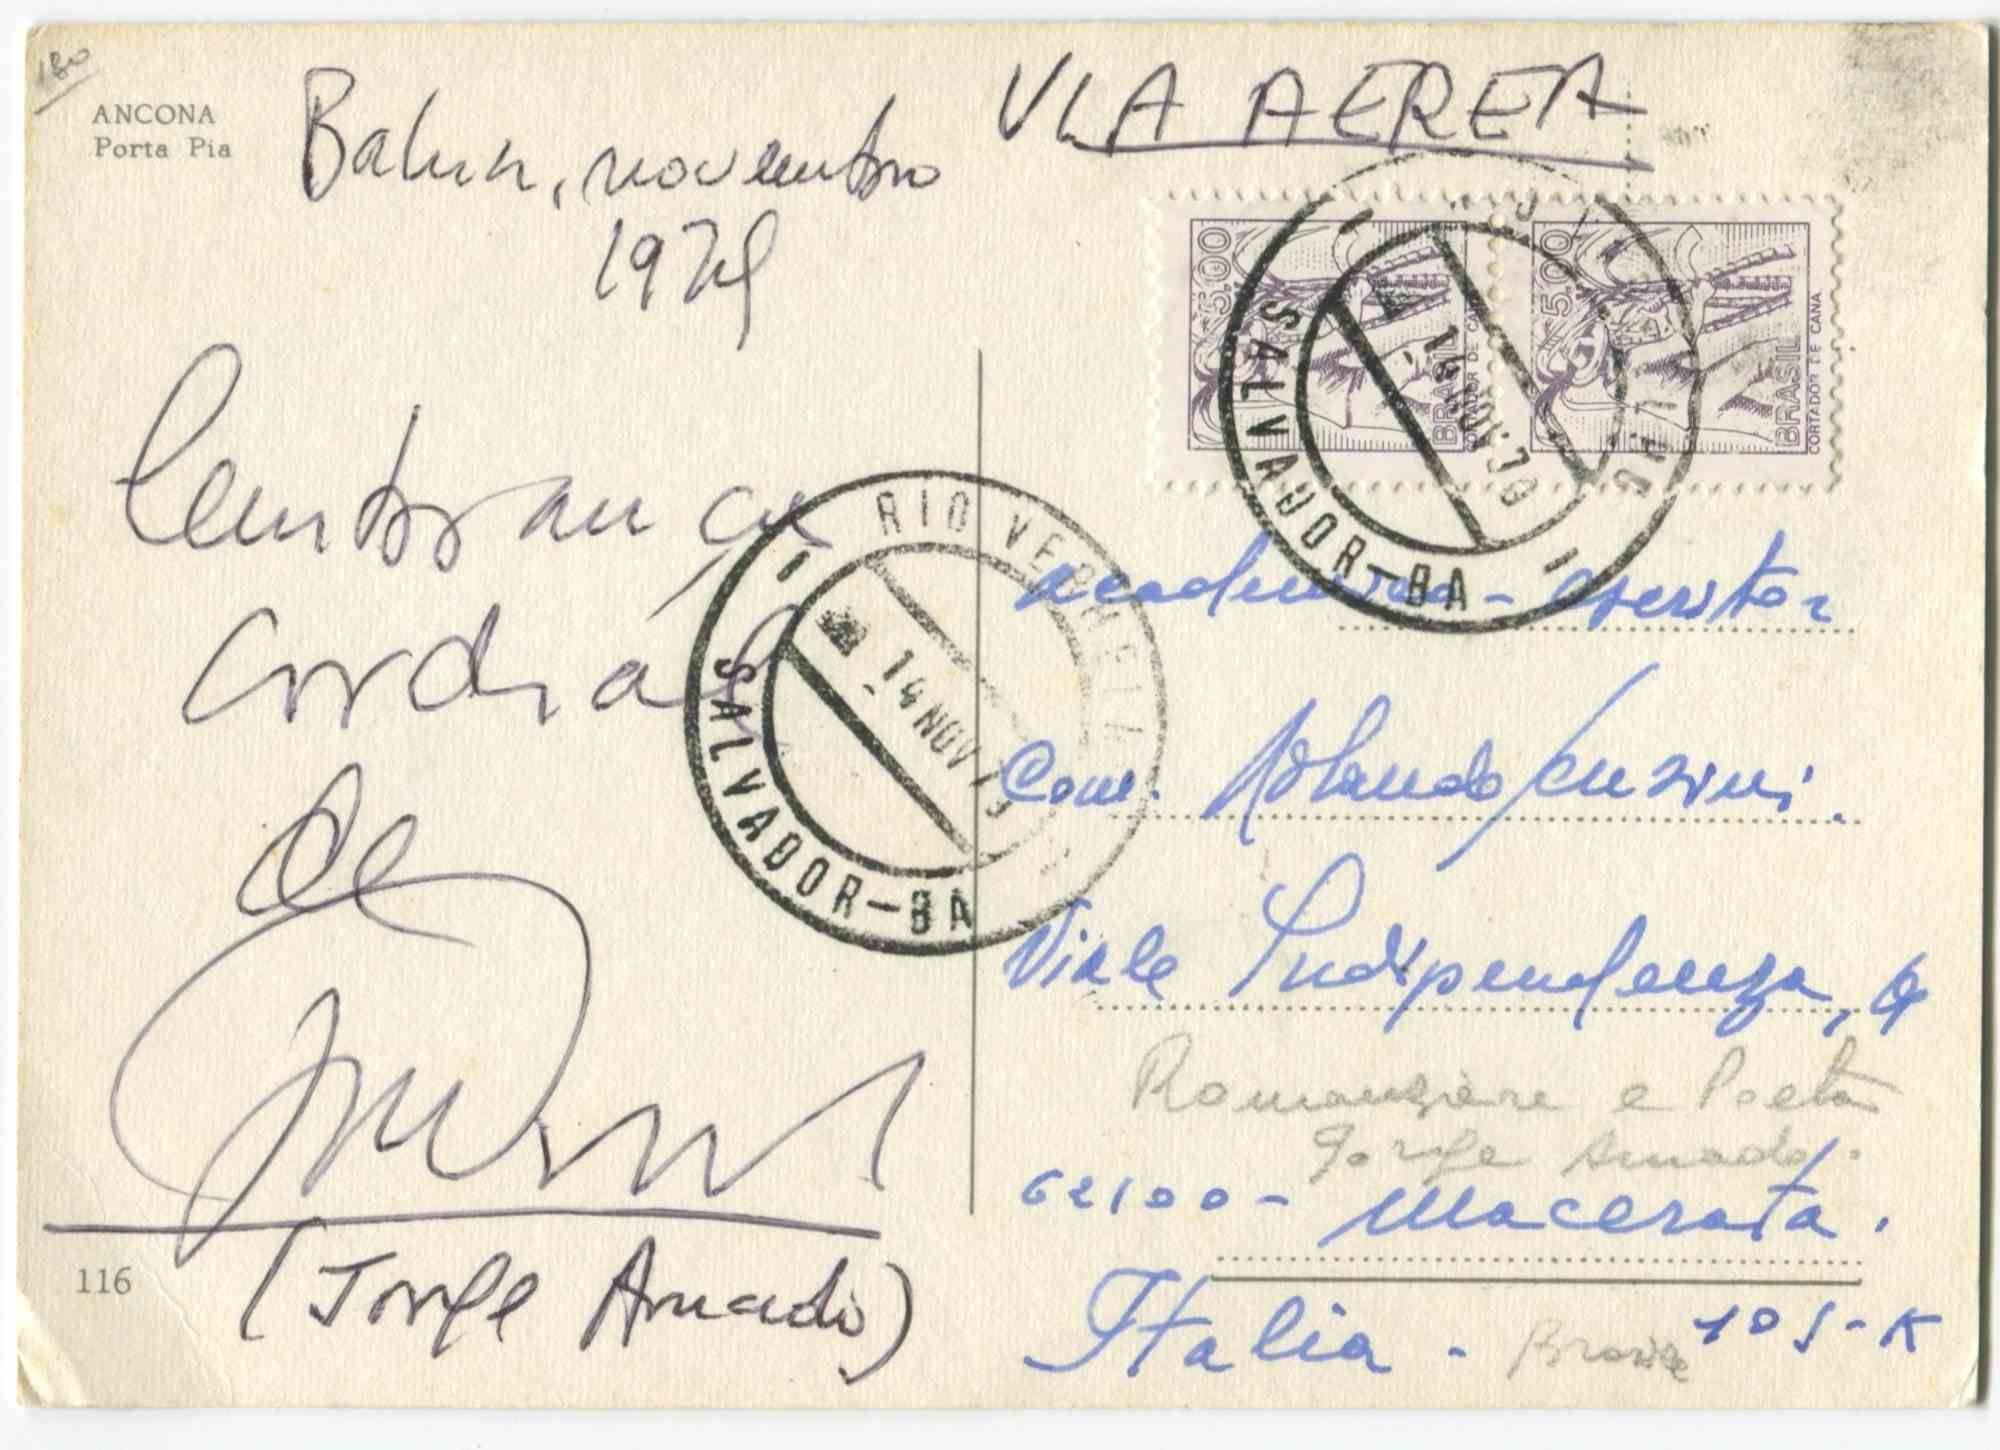 180
ANCONA
Porta Pia
Bahia, novembro
1979
Lembranças
cordiais
de
(Jorge Amado)
116
VIA AEREA
5,00
BRASIL
CORTADOR DE CANA
5,00
BRASIL
CORTADOR DE CANA
SALVADOR-BA
14 NOV
RIO VERMELHO
14 NOV 79
SALVADOR-BA
Com. Rolando
Viale Indipendenza,
Romanziere e Poeta
Jorge Amado.
62100 - Macerata.
Italia -
Brasile
105-K